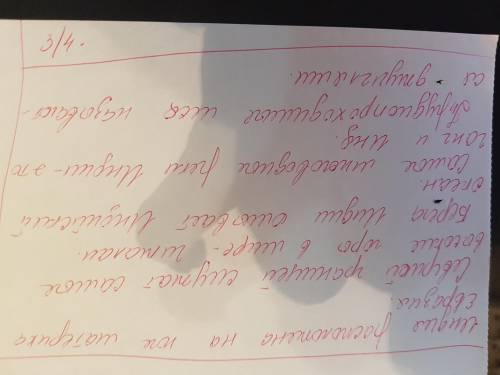 Индия расположена на юге материка
Евразия.
Северной границей служат самые
высокие горы в мире - Гималаи.
Берега Индии омывает Индийский
океан.
Самые многоводные реки Индии - это
Ганг и Инд.
Труднопроходимые леса называют-
ся джунглями.